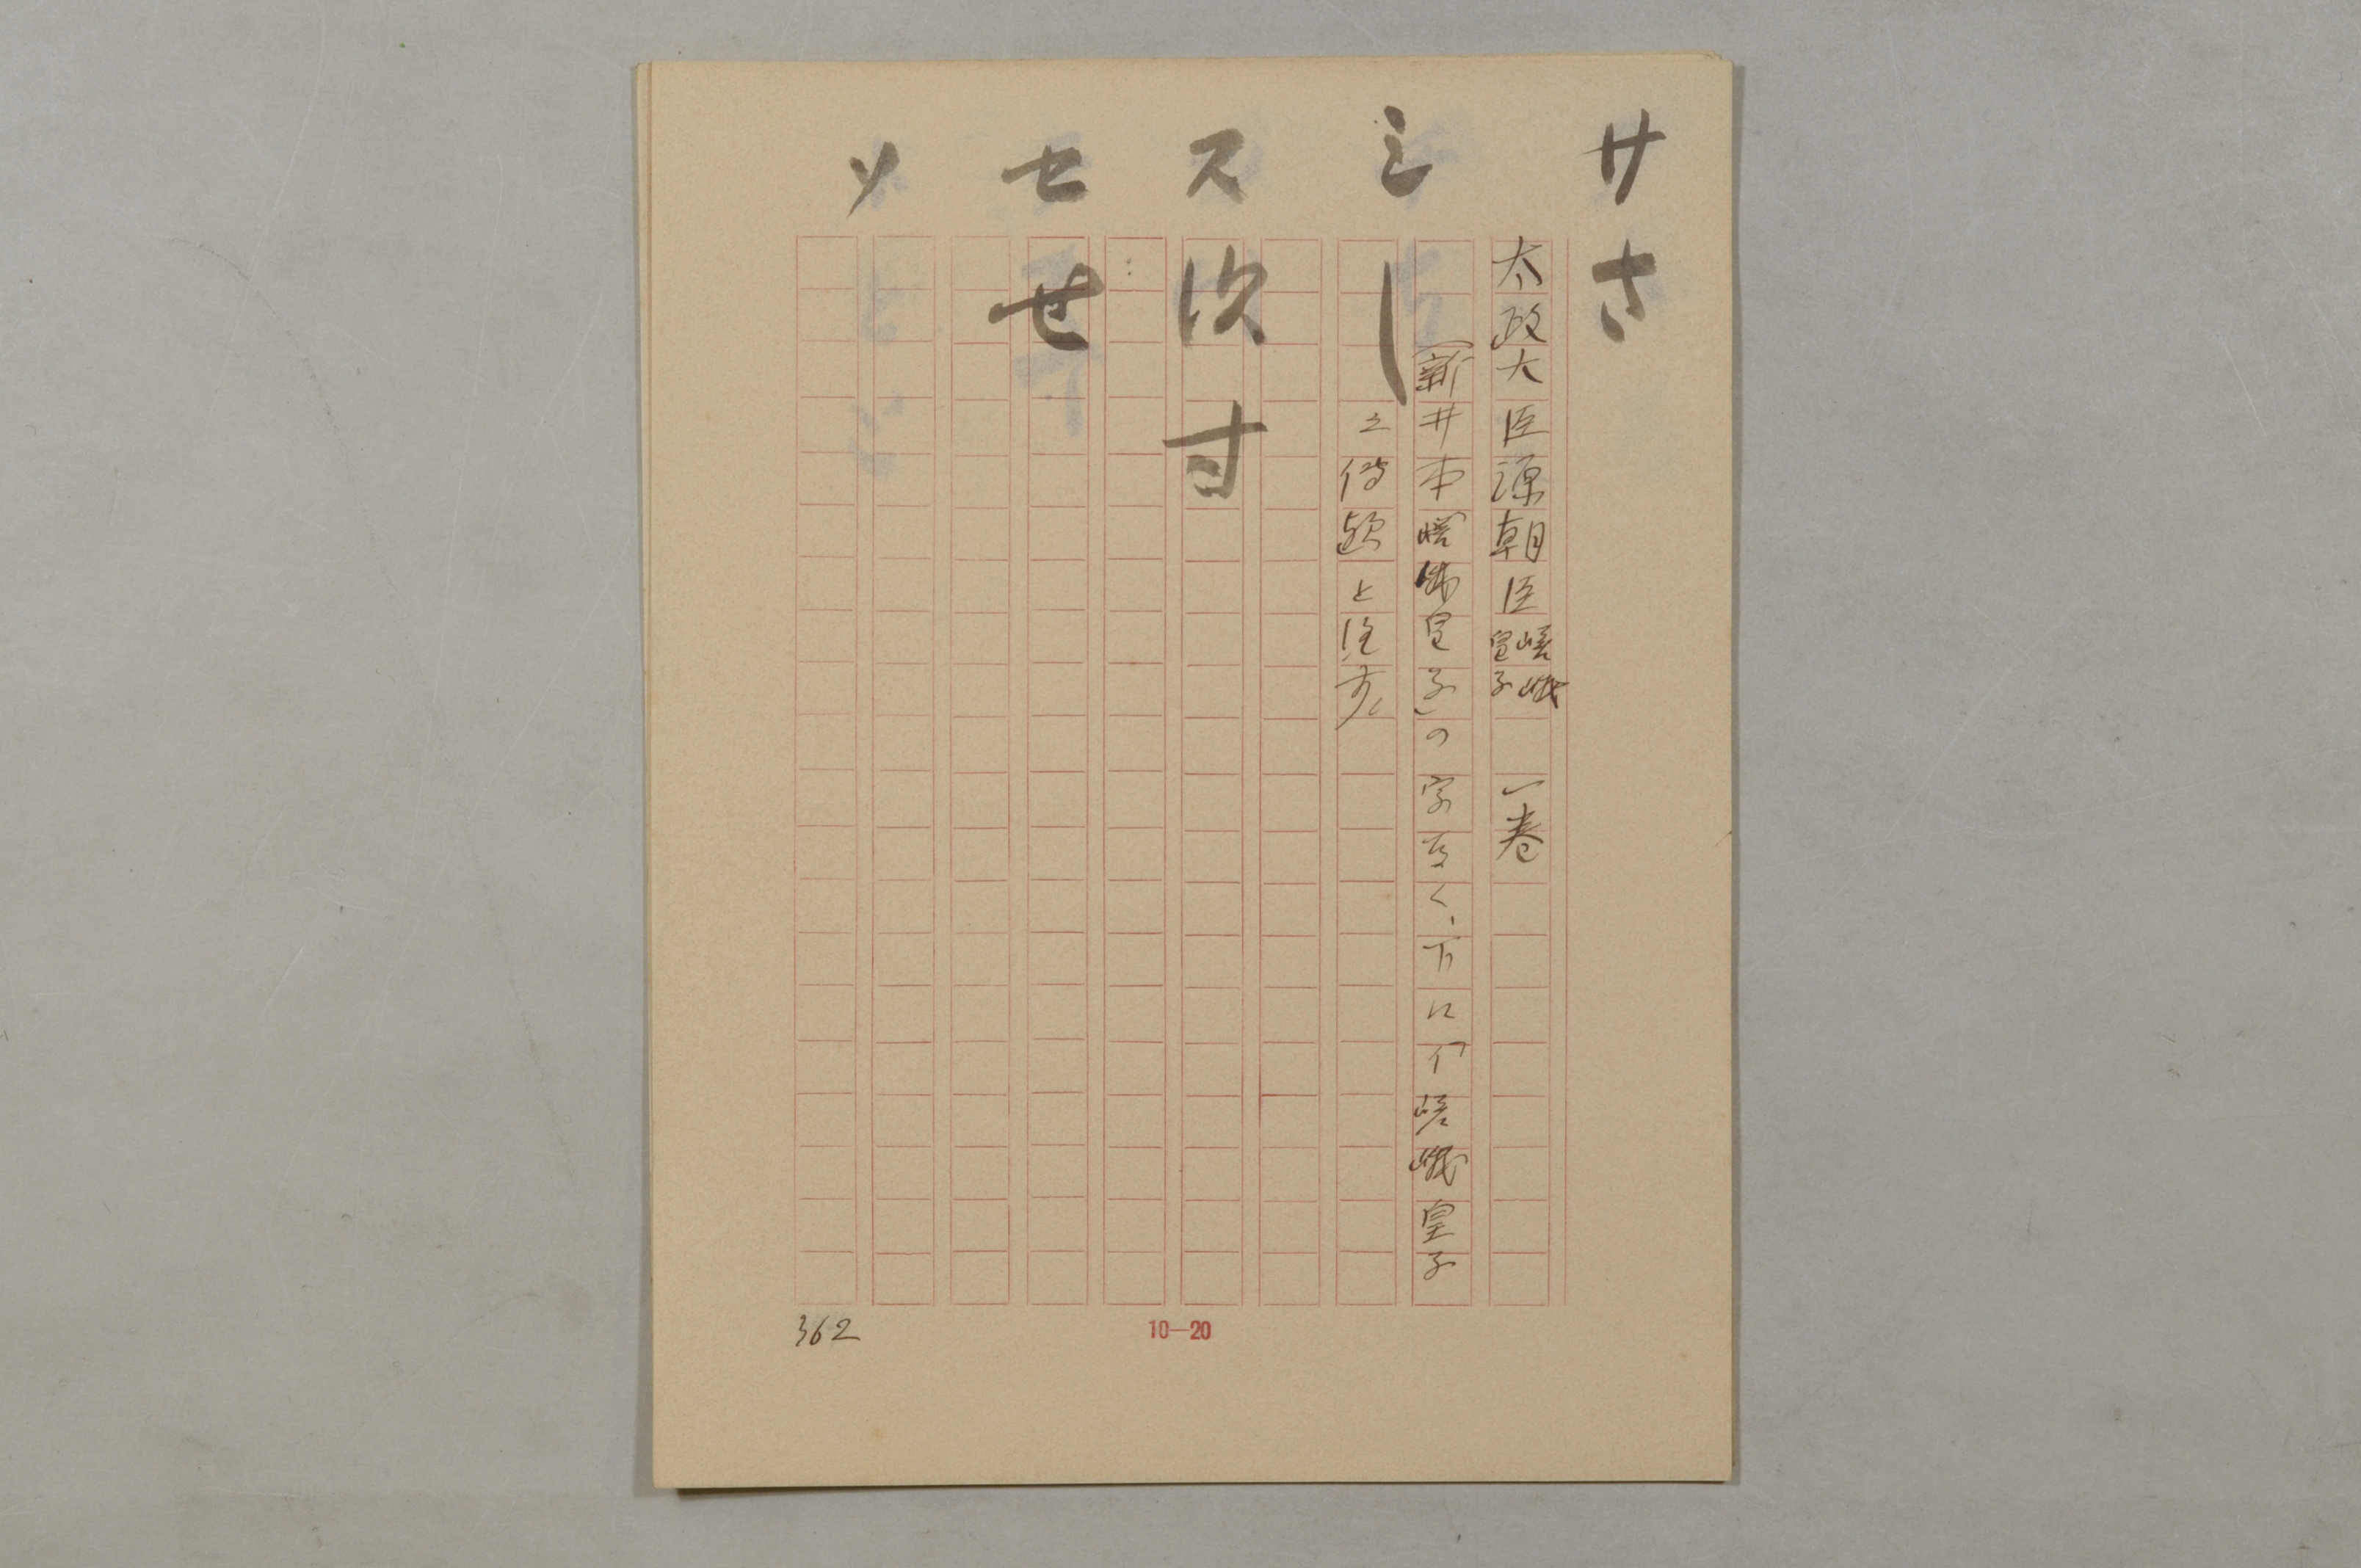 サ さ
太政大臣源朝臣嵯峨皇子 一巻
(新井本「嵯峨皇子」の字なく、下に「嵯峨皇子
之傳歟と注す)
シ し
ス 次 寸
セ せ
ソ
362
10—20